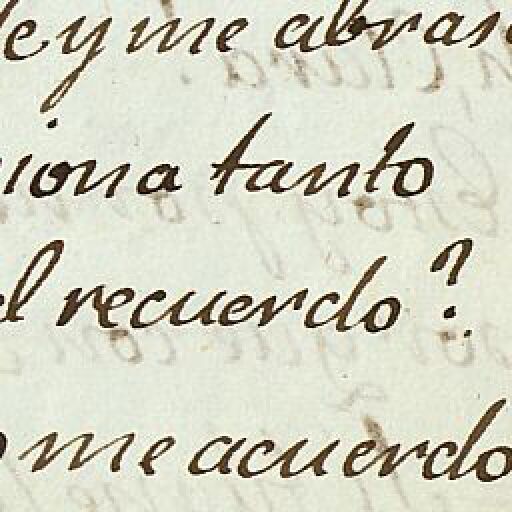 le y me abras
siona tanto
el recuerdo?
o me acuerdo